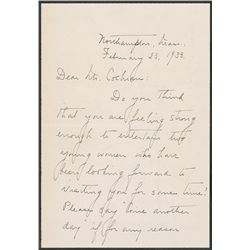 Northampton, Mass.
February 23, 1933.
Dear Mr. Cochran:
Do you think
that you are feeling strong
enough to entertain two
young women who have
been looking forward to
visiting you for some time?
Please say "Come another
day" if for any reason